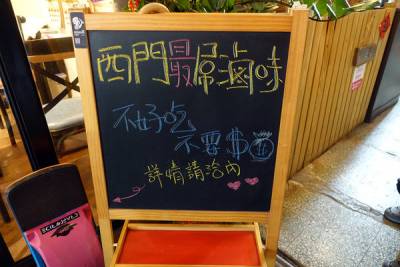 西門最屌滷味
不好吃
不要$
詳情請洽內